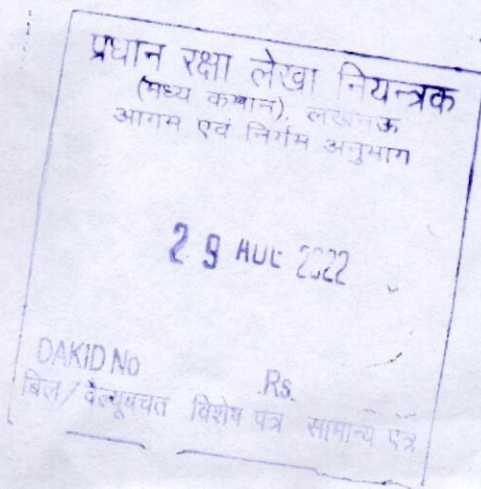 प्रधान रक्षा लेखा नियन्त्रक
(मध्य कमान), लखनऊ
आगम एवं निर्गम अनुभाग
29 AUG 2022
DAKID No Rs.
बिल/वैल्यूबचत विशेष पत्र सामान्य पत्र